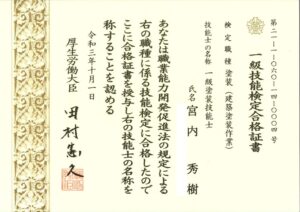 第二一-一-〇六〇-一四-〇〇〇四号
一級技能検定合格証書
検定職種 塗装（建築塗装作業）
技能士の名称 一級塗装技能士
氏名 宮内 秀樹
あなたは職業能力開発促進法の規定による
右の職種に係る技能検定に合格したので
ここに合格証書を授与し右の技能士の名称を
称することを認める
令和三年十月一日
厚生労働大臣
田村憲久